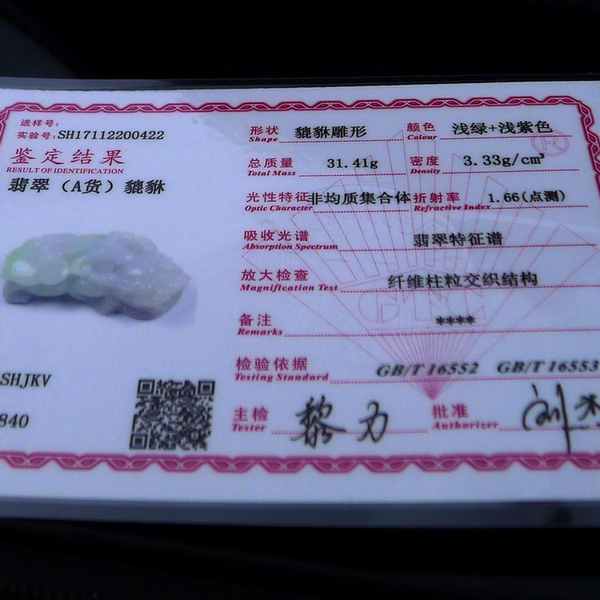 送样号:
实验号:SH17112200422
鉴定结果
RESULT OF IDENTIFICATION
翡翠（A货）貔貅
形状 貔貅雕形 颜色 浅绿+浅紫色
Shape Colour
总质量 31.41g 密度 3.33g/cm³
Total Mass Density
光性特征 非均质集合体 折射率 1.66(点测)
Optic Character Refractive Index
吸收光谱 翡翠特征谱
Absorption Spectrum
放大检查 纤维柱粒交织结构
Magnification Test
备注 ****
Remarks
检验依据 GB/T 16552 GB/T 16553
Testing Standard
SHJKV
840
主检 黎力 批准
Tester Authorizer